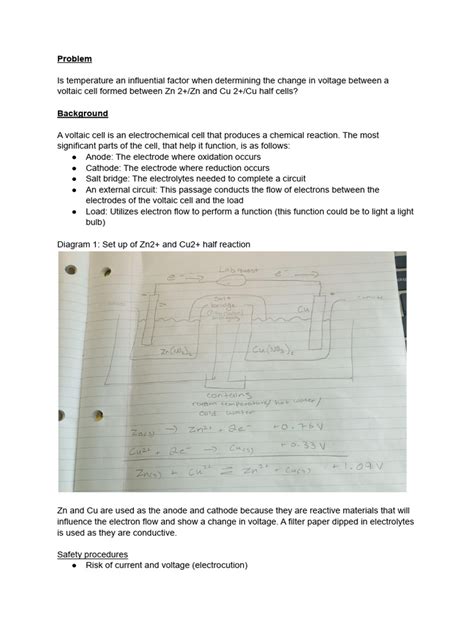 Problem
Is temperature an influential factor when determining the change in voltage between a
voltaic cell formed between Zn 2+/Zn and Cu 2+/Cu half cells?
Background
A voltaic cell is an electrochemical cell that produces a chemical reaction. The most
significant parts of the cell, that help it function, is as follows:
● Anode: The electrode where oxidation occurs
● Cathode: The electrode where reduction occurs
● Salt bridge: The electrolytes needed to complete a circuit
● An external circuit: This passage conducts the flow of electrons between the
electrodes of the voltaic cell and the load
● Load: Utilizes electron flow to perform a function (this function could be to light a light
bulb)
Diagram 1: Set up of Zn2+ and Cu2+ half reaction
Labquest
e⁻ e⁻
Salt
bridge
Cu
Zn(NO₃)₂ Cu(NO₃)₂
room temperature/hot water/
cold water
Zn(s) → Zn²⁺ + 2e⁻ +0.76V
Cu²⁺ + 2e⁻ → Cu(s) +0.33V
Zn(s) + Cu²⁺ ⇌ Zn²⁺ + Cu(s) +1.09V
Zn and Cu are used as the anode and cathode because they are reactive materials that will
influence the electron flow and show a change in voltage. A filter paper dipped in electrolytes
is used as they are conductive.
Safety procedures
● Risk of current and voltage (electrocution)